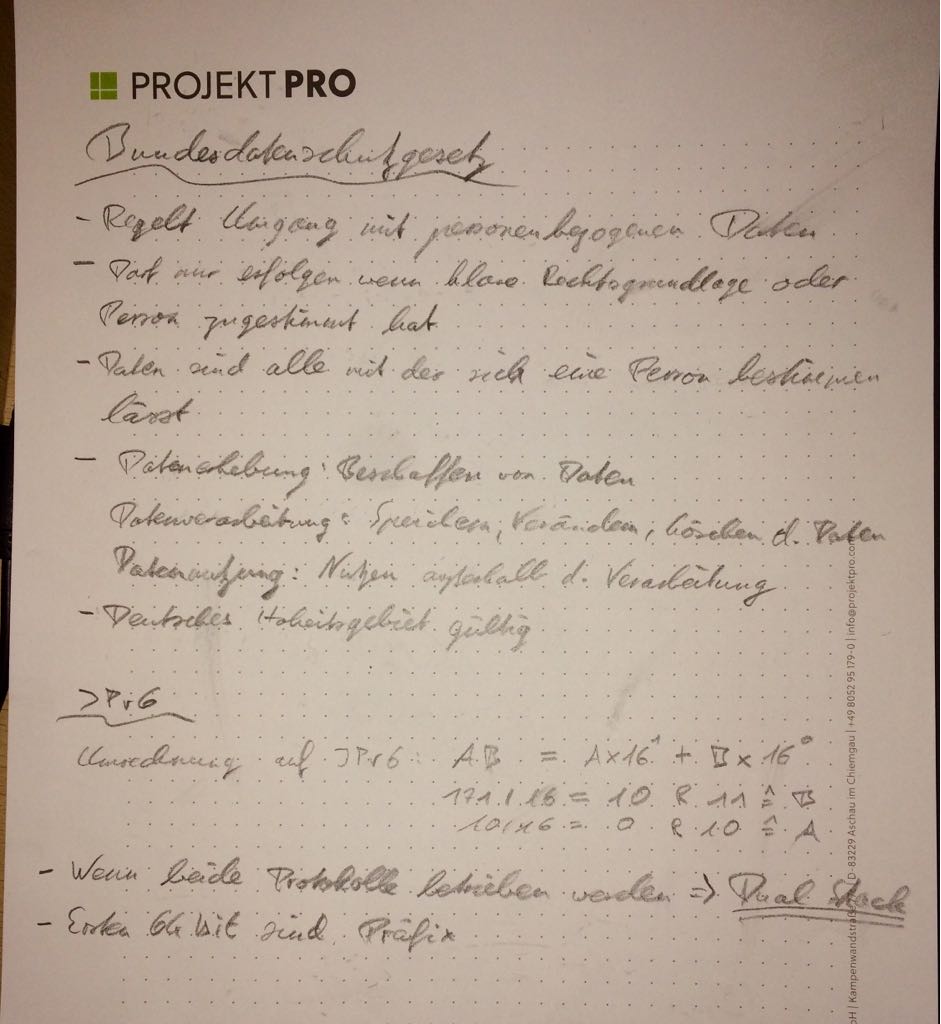 PROJEKT PRO
Bundesdatenschutzgesetz
- Regelt Umgang mit personenbezogenen Daten
- Darf nur erfolgen wenn klare Rechtsgrundlage oder
Person zugestimmt hat
- Daten sind alle mit der sich eine Person bestimmen
lässt
- Datenerhebung: Beschaffen von Daten
Datenverarbeitung: Speichern, Verändern, Löschen d. Daten
Datennutzung: Nutzen außerhalb d. Verarbeitung
- Deutsches Hoheitsgebiet gültig
IPv6
Umrechnung auf IPv6: AB = A x 16¹ + B x 16⁰
171 / 16 = 10 R 11 ≙ B
10 / 16 = 0 R 10 ≙ A
- Wenn beide Protokolle betrieben werden => Dual Stack
- Ersten 64 bit sind Präfix
bH | Kampenwandstraße D-83229 Aschau im Chiemgau | +49 8052 95 179-0 | info@projektpro.com